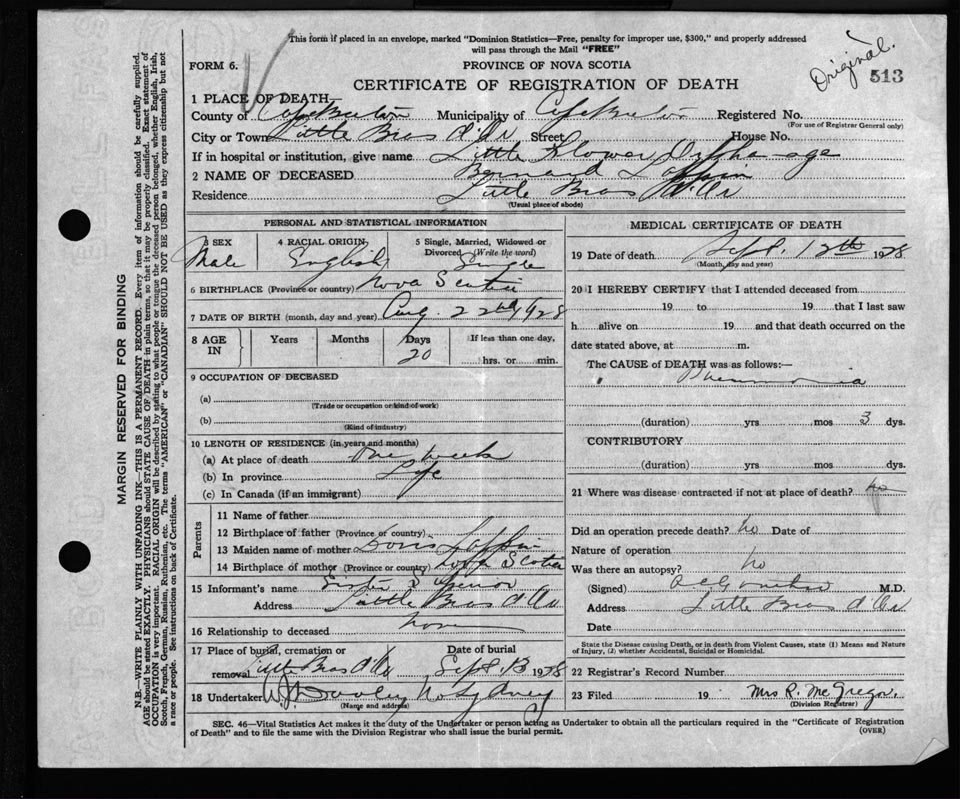 This form if placed in an envelope, marked "Dominion Statistics—Free, penalty for improper use, $300," and properly addressed
will pass through the Mail "FREE"
Original.
FORM 6.
PROVINCE OF NOVA SCOTIA
513
CERTIFICATE OF REGISTRATION OF DEATH
1 PLACE OF DEATH—
County of Cape Breton Municipality of Cape Breton Registered No.
(For use of Registrar General only)
City or Town Little Bras d'Or Street House No.
If in hospital or institution, give name Little Flower Orphanage
2 NAME OF DECEASED Bernard Laffin
Residence Little Bras d'Or
(Usual place of abode)
PERSONAL AND STATISTICAL INFORMATION
3 SEX 4 RACIAL ORIGIN 5 Single, Married, Widowed or
Divorced (Write the word)
Male English Single
6 BIRTHPLACE (Province or country) Nova Scotia
7 DATE OF BIRTH (month, day and year) Aug. 22nd 1928
8 AGE IN Years Months Days If less than one day,
20 hrs. or min.
9 OCCUPATION OF DECEASED
(a)
(Trade or occupation or kind of work)
(b)
(Kind of industry)
10 LENGTH OF RESIDENCE (in years and months)
(a) At place of death one week
(b) In province Life
(c) In Canada (if an immigrant)
Parents
11 Name of father
12 Birthplace of father (Province or country)
13 Maiden name of mother Doris Laffin
14 Birthplace of mother (Province or country) Nova Scotia
15 Informant's name Sister Superior
Address Little Bras d'Or
16 Relationship to deceased none
17 Place of burial, cremation or Date of burial
removal Little Bras d'Or Sept. 13 1928
18 Undertaker W. J. Dooley No Sydney
(Name and address)
MEDICAL CERTIFICATE OF DEATH
19 Date of death Sept. 12th 1928
(Month, day and year)
20 I HEREBY CERTIFY that I attended deceased from
19 to 19 that I last saw
h alive on 19 and that death occurred on the
date stated above, at m.
The CAUSE of DEATH was as follows:
Pneumonia
(duration) yrs mos 3 dys.
CONTRIBUTORY
(duration) yrs mos dys.
21 Where was disease contracted if not at place of death? no
Did an operation precede death? no Date of
Nature of operation
Was there an autopsy? no
(Signed) M.D.
Address Little Bras d'Or
Date
State the Disease causing Death, or in Death from Violent Causes, state (1) Means and Nature
of Injury, (2) whether Accidental, Suicidal or Homicidal.
22 Registrar's Record Number
23 Filed 19 Mrs R. McGregor,
(Division Registrar)
SEC. 46—Vital Statistics Act makes it the duty of the Undertaker or person acting as Undertaker to obtain all the particulars required in the "Certificate of Registration
of Death" and to file the same with the Division Registrar who shall issue the burial permit.
(OVER)
MARGIN RESERVED FOR BINDING
N.B.—WRITE PLAINLY WITH UNFADING INK—THIS IS A PERMANENT RECORD. Every item of information should be carefully supplied.
AGE should be stated EXACTLY. PHYSICIANS should STATE CAUSE OF DEATH in plain terms, so that it may be properly classified. Exact statement of
OCCUPATION is very important. RACIAL ORIGIN will be described by stating to what people or tongue the deceased person belonged, whether English, Irish,
Scotch, French, German, Russian, Ruthenian, etc. The terms "AMERICAN" or "CANADIAN" SHOULD NOT BE USED as they express citizenship but not
a race or people. See instructions on back of Certificate.